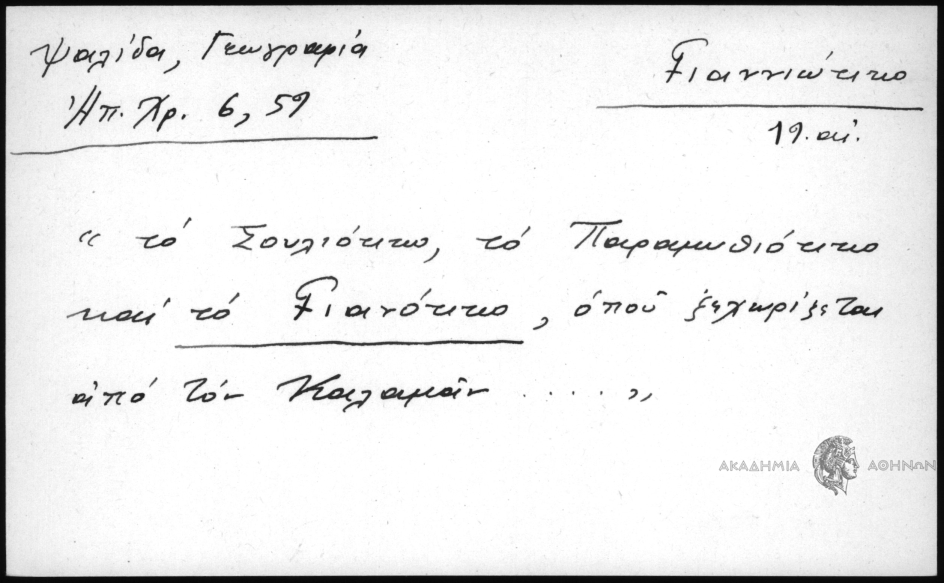 Ψαλίδα, Γεωγραφία
Ἠπ. Χρ. 6, 59
Γιαννιώτικο
19. αἰ.
“ τό Σουλιότικο, τό Παραμυθιότικο
καί τό Γιανότικο, ὁποῦ ξεχωρίζεται
ἀπό τόν Καλαμᾶν ..... ”
ΑΚΑΔΗΜΙΑ ΑΘΗΝΩΝ